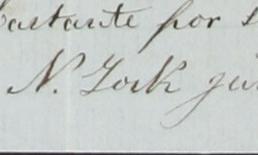 bastante por
N. York